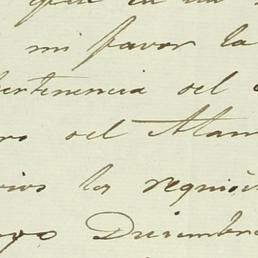 mi favor la
pertenencia del
ro del Alam
rios los requisi
Diciembre